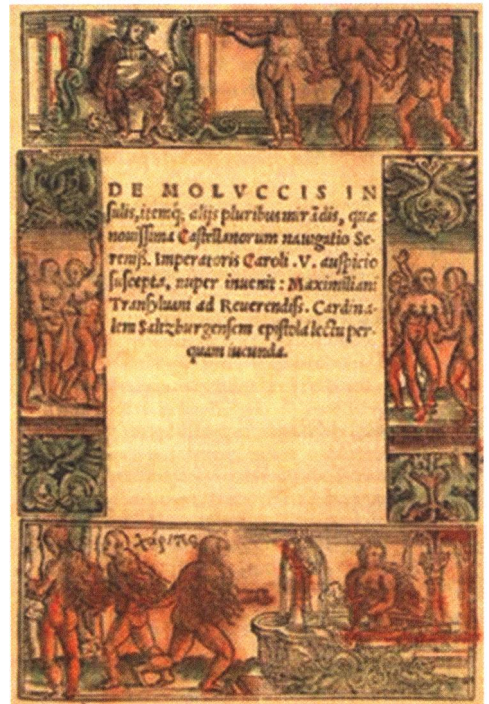 DE MOLVCCIS IN
sulis, itemq́; alijs pluribus mirãdis, quæ
nouissima Castellanorum nauigatio Se-
reniss. Imperatoris Caroli .V. auspicio
suscepta, nuper inuenit: Maximiliani
Transyluani ad Reuerendiss. Cardina-
lem Saltzburgensem epistola lectu per-
quam iucunda.
χάριτες